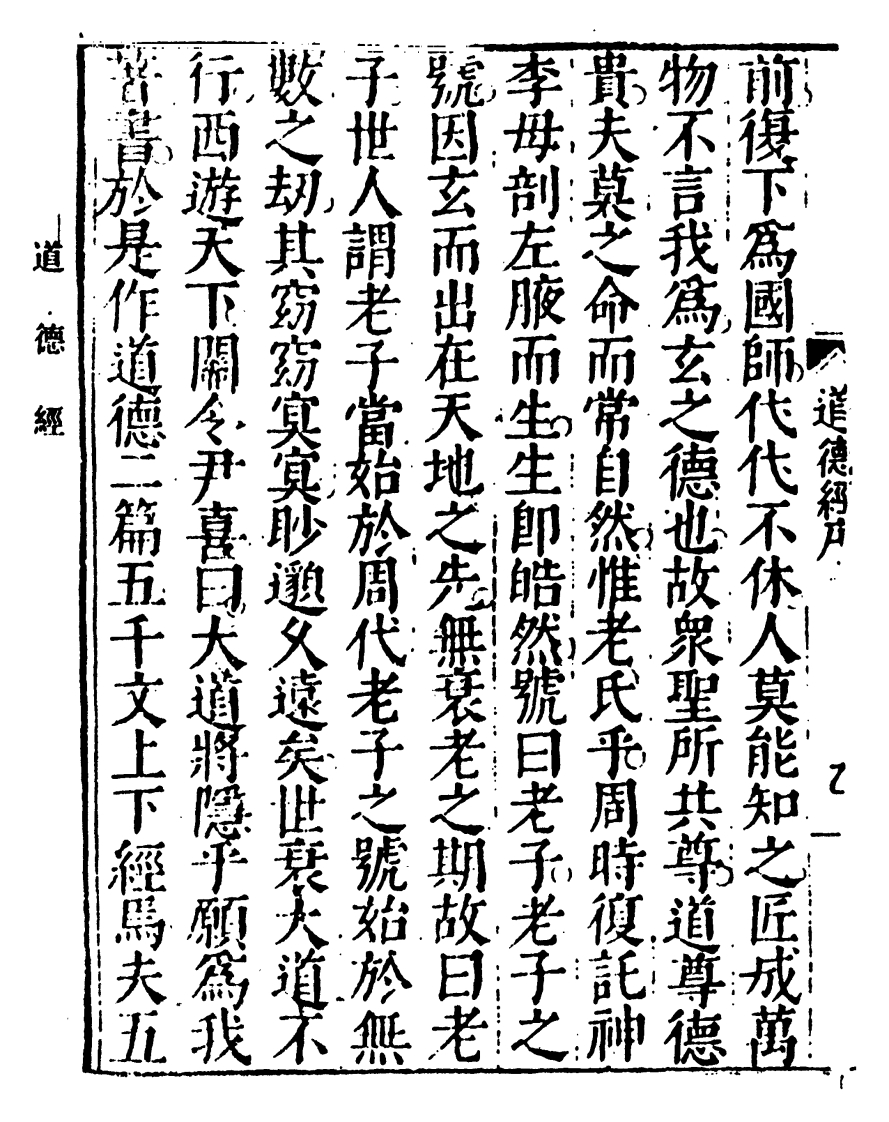 道德經
前復下爲國師代代不休人莫能知之匠成萬
物不言我爲玄之德也故衆聖所共尊道尊德
貴夫莫之命而常自然惟老氏乎周時復託神
李母剖左腋而生生卽皓然號曰老子老子之
號因玄而出在天地之先無衰老之期故曰老
子世人謂老子當始於周代老子之號始於無
數之劫其窈窈冥冥眇邈久遠矣世衰大道不
行西遊天下關令尹喜曰大道將隱乎願爲我
著書於是作道德二篇五千文上下經焉夫五
道德經